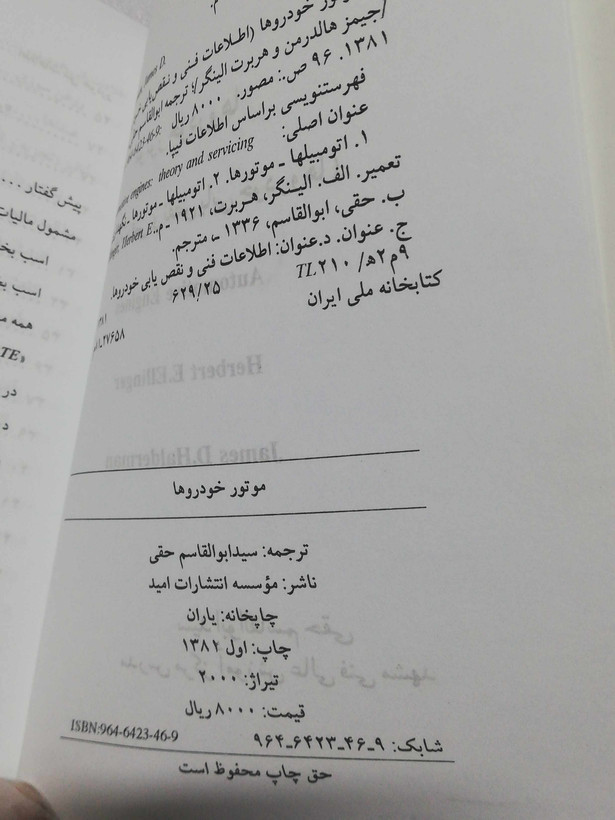 م.
ور خودروها (اطلاعات فنی و نقص یابی
/جیمز هالدرمن و هربرت الینگر/؛ ترجمه ابوالقاسم
۱۳۸۱. ۹۶ ص.: مصور. ۸۰۰۰ ریال
فهرستنویسی براساس اطلاعات فیپا.
عنوان اصلی:
engines: theory and servicing
۱. اتومبیلها ـ موتورها. ۲. اتومبیلها ـ موتورها ـ
تعمیر. الف. الینگر، هربرت، ۱۹۲۱ ـ م. Herbert E.
ب. حقی، ابوالقاسم، ۱۳۳۶ ـ، مترجم.
ج. عنوان. د.عنوان: اطلاعات فنی و نقص یابی خودروها.
۹م۲ه/ TL۲۱۰
۶۲۹/۲۵
کتابخانه ملی ایران
۲۷۶۵۸
موتور خودروها
ترجمه: سیدابوالقاسم حقی
ناشر: مؤسسه انتشارات امید
چاپخانه: یاران
چاپ: اول ۱۳۸۲
تیراژ: ۲۰۰۰
قیمت: ۸۰۰۰ ریال
شابک: ۹-۴۶-۶۴۲۳-۹۶۴ ISBN:964-6423-46-9
حق چاپ محفوظ است
پیش گفتار ...
مشمول مالیات
اسب بخ
اسب بخ
همه م
TE»
در